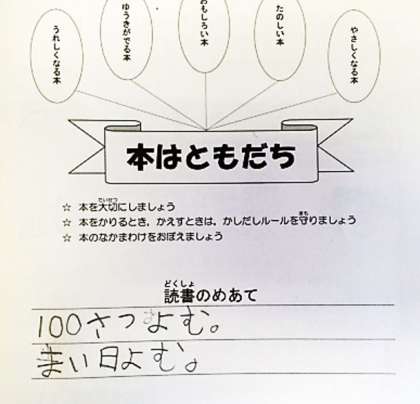 うれしくなる本
ゆうきがでる本
おもしろい本
たのしい本
やさしくなる本
本はともだち
☆ 本を大切にしましょう
☆ 本をかりるとき、かえすときは、かしだしルールを守りましょう
☆ 本のなかまわけをおぼえましょう
読書のめあて
100さつよむ。
まい日よむ。